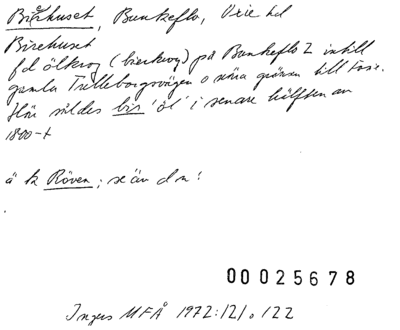 Birehuset, Bunkeflo, Oxie hd
Birehuset
fd ölkrog (bierkrog) på Bunkeflo 2 intill
gamla Trelleborgsvägen o nära gränsen till Fosie.
Här såldes bir 'öl' i senare hälften av
1800-t
ä k Röven; se äv d n!
00025678
Ingers MFÅ 1972:12/o 122